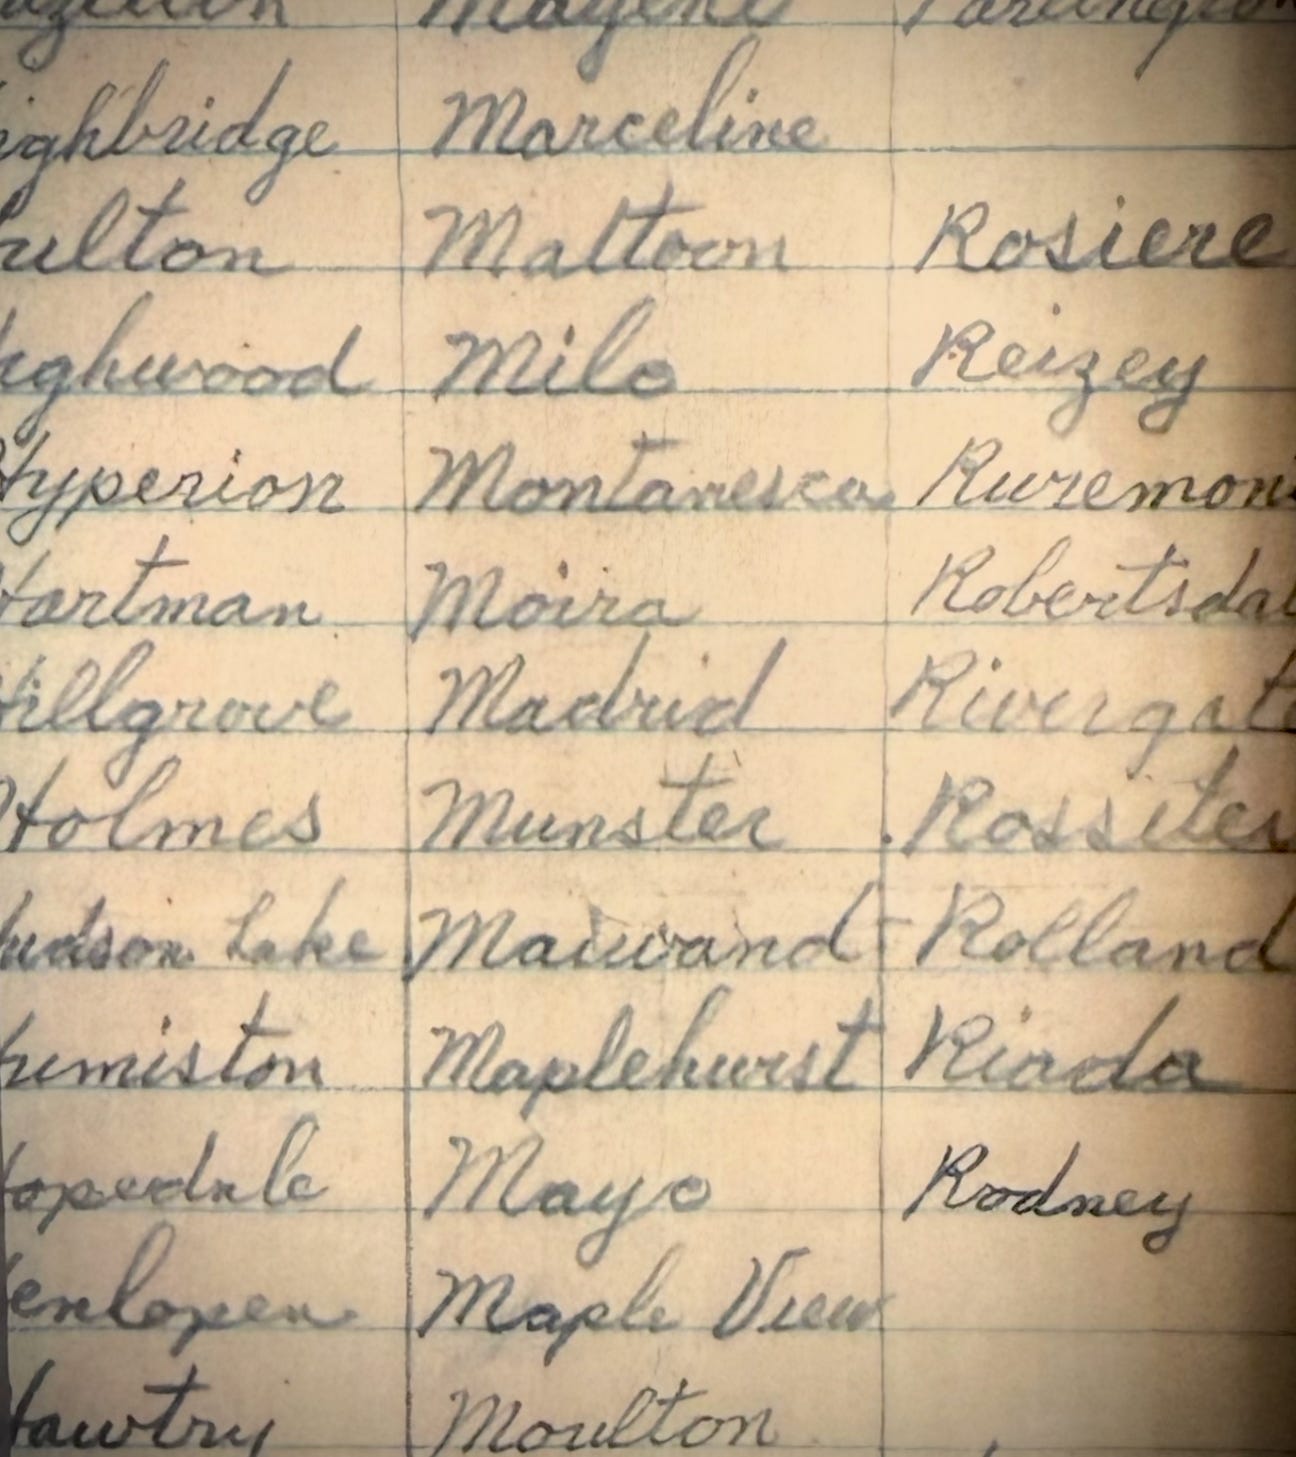 Marceline
ighbridge
ulton Mattoon Rosiere
ighwood Milo Reizey
Hyperion Montanesca Ruremon
Hartman Moira Robertsdal
Hillgrove Madrid Rivergate
Holmes Munster Rossiter
Hudson Lake Maiwand Rolland
umiston Maplehurst
Hopedale Mayo Rodney
enlopen Maple View
Hawtry Moulton